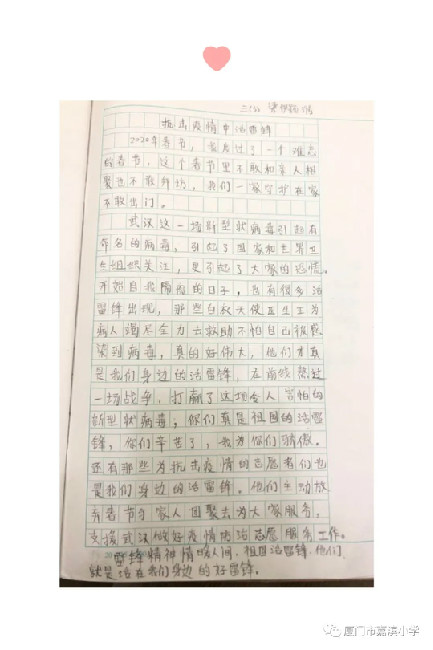 抗击疫情中活雷锋
2020年春节,我度过了一个难忘
的春节,这个春节里不敢和亲人相
聚也不敢拜访,我们一家宅在家
不敢出门。
武汉这一场新型状病毒引起有
命名的病毒,引起了国家和世界卫
生组织关注,更引起了大家的恐慌。
开始自我隔离的日子,也有很多活
雷锋出现,那些白衣天使医生工为
病人竭尽全力去救助不怕自己很感
染到病毒,真的好伟大,他们才真
是我们身边的活雷锋,在前线
一场战争,打赢了这场令人害怕的
新型状病毒,你们真是祖国的活雷
锋,你们辛苦了,我为你们骄傲。
还有那些为抗击疫情的志愿者们也
是我们身边的活雷锋。他们主动放
弃春节与家人团聚去为大家服务,
支援武汉做好疫情防治志愿服务工作。
雷锋精神情暖人间,祖国活雷锋,他们
就是活在我们身边的好雷锋。
厦门市嘉滨小学